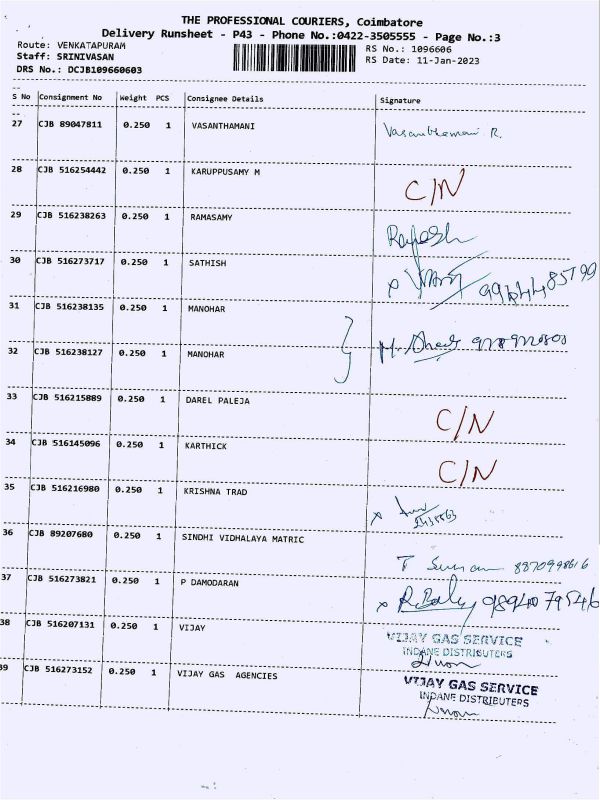 THE PROFESSIONAL COURIERS, Coimbatore
Delivery Runsheet - P43 - Phone No.:0422-3505555 - Page No.:3
Route: VENKATAPURAM
RS No.: 1096606
Staff: SRINIVASAN
RS Date: 11-Jan-2023
DRS No.: DCJB109660603
S No Consignment No Weight PCS Consignee Details Signature
27 CJB 89047811 0.250 1 VASANTHAMANI Vasanthamani R.
28 CJB 516254442 0.250 1 KARUPPUSAMY M C/N
29 CJB 516238263 0.250 1 RAMASAMY Rajesh
30 CJB 516273717 0.250 1 SATHISH
31 CJB 516238135 0.250 1 MANOHAR
32 CJB 516238127 0.250 1 MANOHAR
33 CJB 516215889 0.250 1 DAREL PALEJA C/N
34 CJB 516145096 0.250 1 KARTHICK C/N
35 CJB 516216980 0.250 1 KRISHNA TRAD
36 CJB 89207680 0.250 1 SINDHI VIDHALAYA MATRIC 8870998616
37 CJB 516273821 0.250 1 P DAMODARAN
38 CJB 516207131 0.250 1 VIJAY VIJAY GAS SERVICE
INDANE DISTRIBUTERS
39 CJB 516273152 0.250 1 VIJAY GAS AGENCIES VIJAY GAS SERVICE
INDANE DISTRIBUTERS